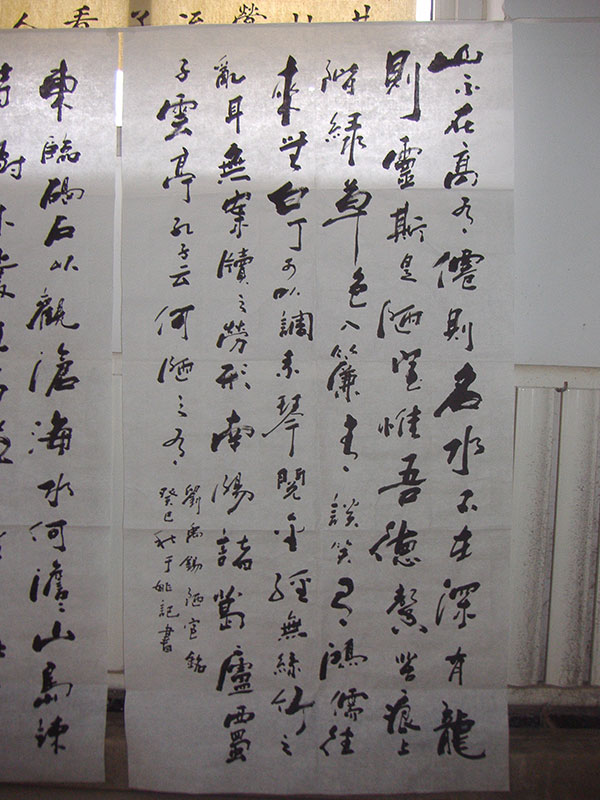 山不在高有僊則名水不在深有龍
則靈斯是陋室惟吾德馨苔痕上
階緑草色入簾青談笑有鴻儒往
來無白丁可以調素琴閱金經無絲竹之
亂耳無案牘之勞形南陽諸葛廬西蜀
子雲亭孔子云何陋之有
劉禹錫陋室銘
癸巳秋于姚記書
東臨碣石以觀滄海水何澹澹山島竦